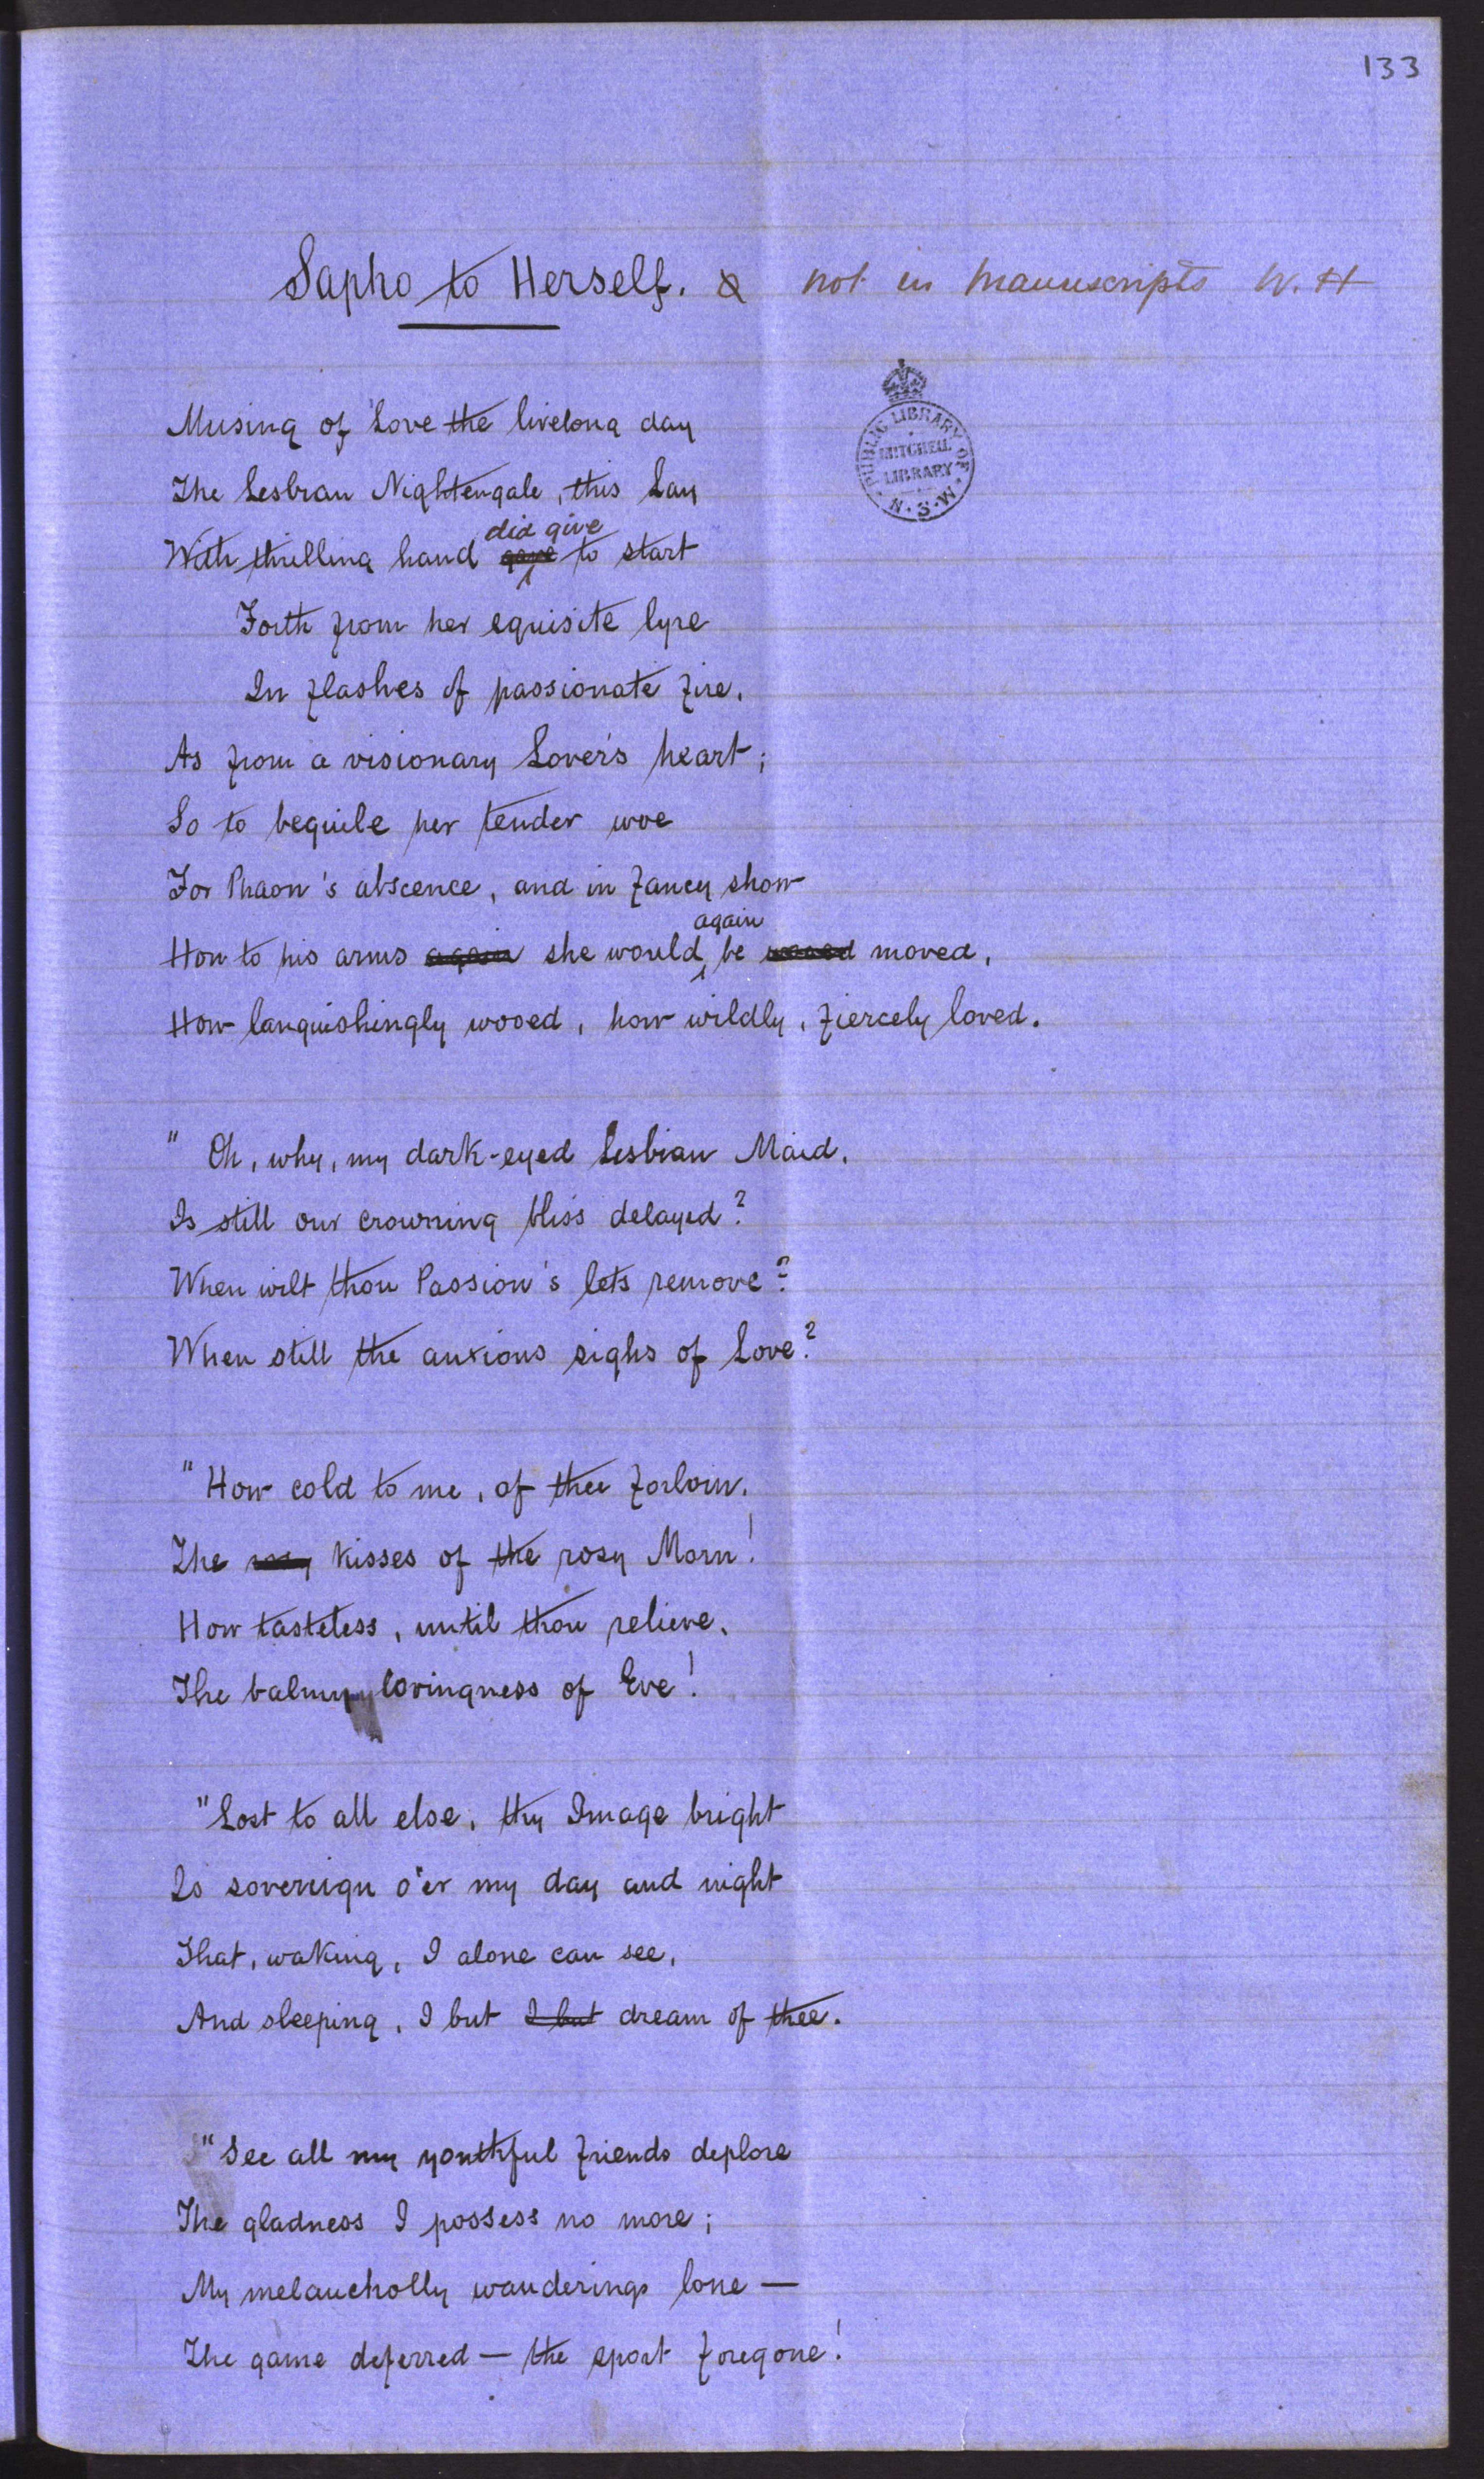 133
Sapho to Herself. & not in manuscripts W. H
PUBLIC LIBRARY OF N.S.W.
MITCHELL LIBRARY
Musing of Love the livelong day
The Lesbian Nightengale, this Lay
With thrilling hand gave did give to start
Forth from her equisite lyre
In flashes of passionate fire,
As from a visionary Lover's heart;
So to beguile her tender woe
For Phaon's abscence, and in fancy show
How to his arms again she would again be wooed moved,
How languishingly wooed, how wildly, fiercely loved.
" Oh, why, my dark-eyed Lesbian Maid,
Is still our crowning bliss delayed?
When wilt thou Passion's lets remove?
When still the anxious sighs of Love?
"How cold to me, of thee forlorn,
The rosy kisses of the rosy Morn!
How tasteless, until thou relieve,
The balmy lovingness of Eve!
"Lost to all else, thy Image bright
Is sovereign o'er my day and night
That, waking, I alone can see,
And sleeping, I but I but dream of thee.
"See all my youthful friends deplore
The gladness I possess no more;
My melancholly wanderings lone —
The game deferred — the sport foregone!